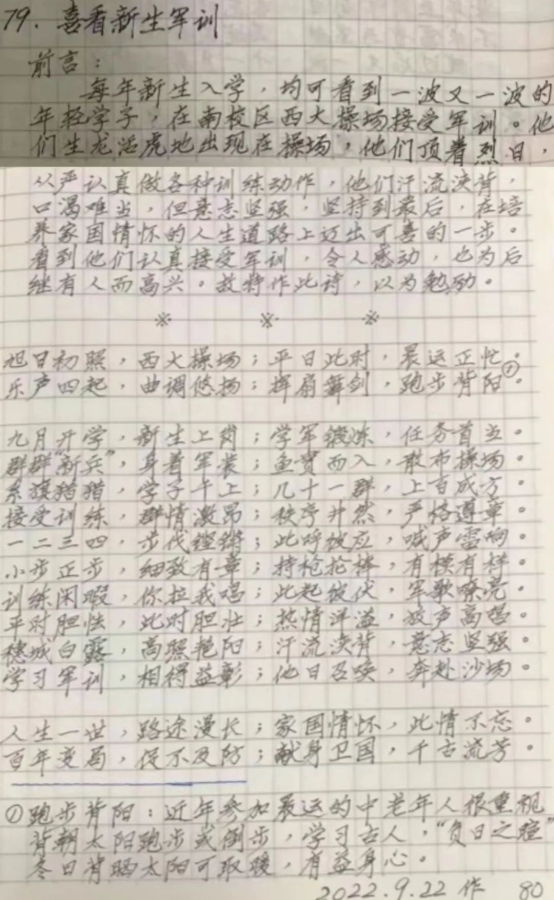 79. 喜看新生军训
前言：
每年新生入学，均可看到一波又一波的
年轻学子，在南校区西大操场接受军训。他
们生龙活虎地出现在操场，他们顶着烈日，
从严认真做各种训练动作，他们汗流浃背，
口渴难当，但意志坚强，坚持到最后，在培
养家国情怀的人生道路上迈出可喜的一步。
看到他们认真接受军训，令人感动，也为后
继有人而高兴。故特作此诗，以为勉励。
※ ※ ※
旭日初照，西大操场；平日此时，晨运正忙。
乐声四起，曲调悠扬；挥扇舞剑，跑步背阳①。
九月开学，新生上岗；学军锻炼，任务首当。
群群“新兵”，身着军装；鱼贯而入，散布操场。
系旗猎猎，学子千上；几十一群，上百成方。
接受训练，群情激昂；秩序井然，严格遵章。
一二三四，步伐铿锵；此呼彼应，喊声雷响。
小步正步，细致有章；持枪抡棒，有模有样。
训练闲暇，你拉我唱；此起彼伏，军歌嘹亮。
平时胆怯，此时胆壮；热情洋溢，放声高唱。
穗城白露，高照艳阳；汗流浃背，意志坚强。
学习军训，相得益彰；他日召唤，奔赴沙场。
人生一世，路途漫长；家国情怀，此情不忘。
百年变局，促不及防；献身卫国，千古流芳。
①跑步背阳：近年参加晨运的中老年人很重视
背朝太阳跑步或倒步，学习古人，“负日之暄”
冬日背晒太阳可取暖，有益身心。
2022.9.22 作 80